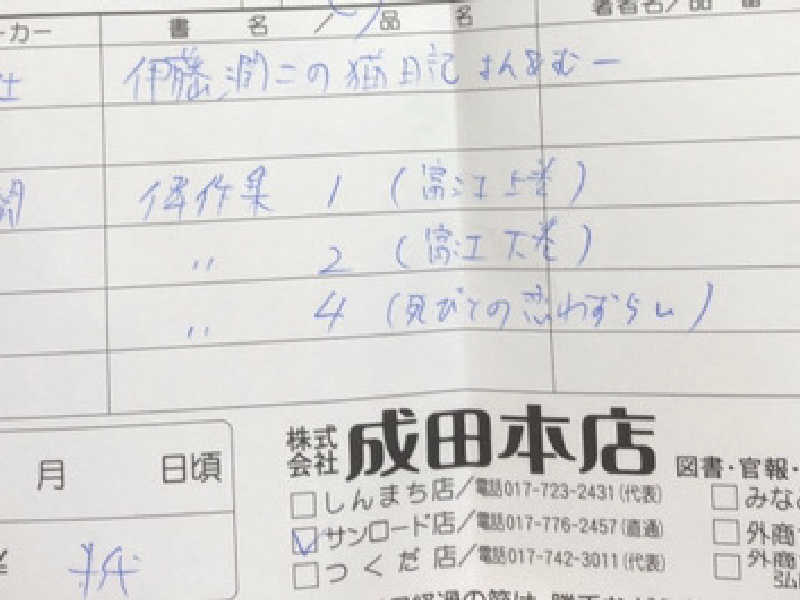 ーカー 書名／品名 著者名／品番
社 伊藤潤二の猫日記 よん&むー
傑作集 1 (富江上巻)
〃 2 (富江下巻)
〃 4 (死びとの恋わずらい)
株式会社 成田本店 図書・官報・
月 日頃
しんまち店／電話017-723-2431(代表) みな
サンロード店／電話017-776-2457(直通) 外商
つくだ店／電話017-742-3011(代表) 外商